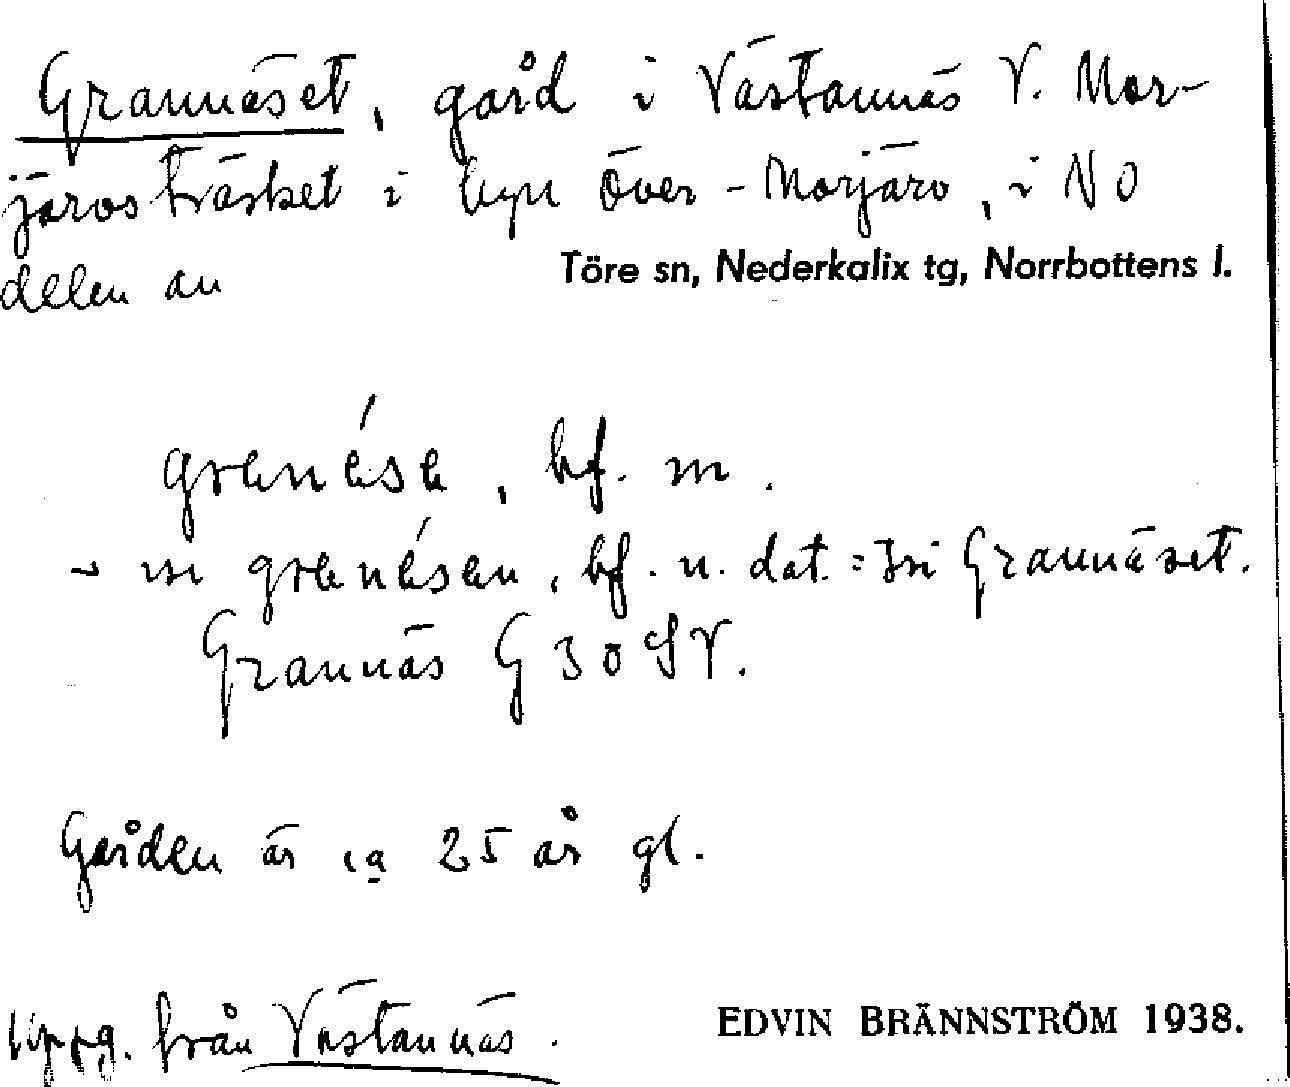 Grannäset, gård i Västannäs V. Mor-
järvsträsket i byn Över-Morjärv, i NO
delen av
Töre sn, Nederkalix tg, Norrbottens l.
granésa, bf. m.
~ in granésan, bf. n. dat. = In i Grannäset.
Grannäs G 30 SV.
Gården är ca 25 år gl.
Uppg. från Västannäs.
EDVIN BRÄNNSTRÖM 1938.